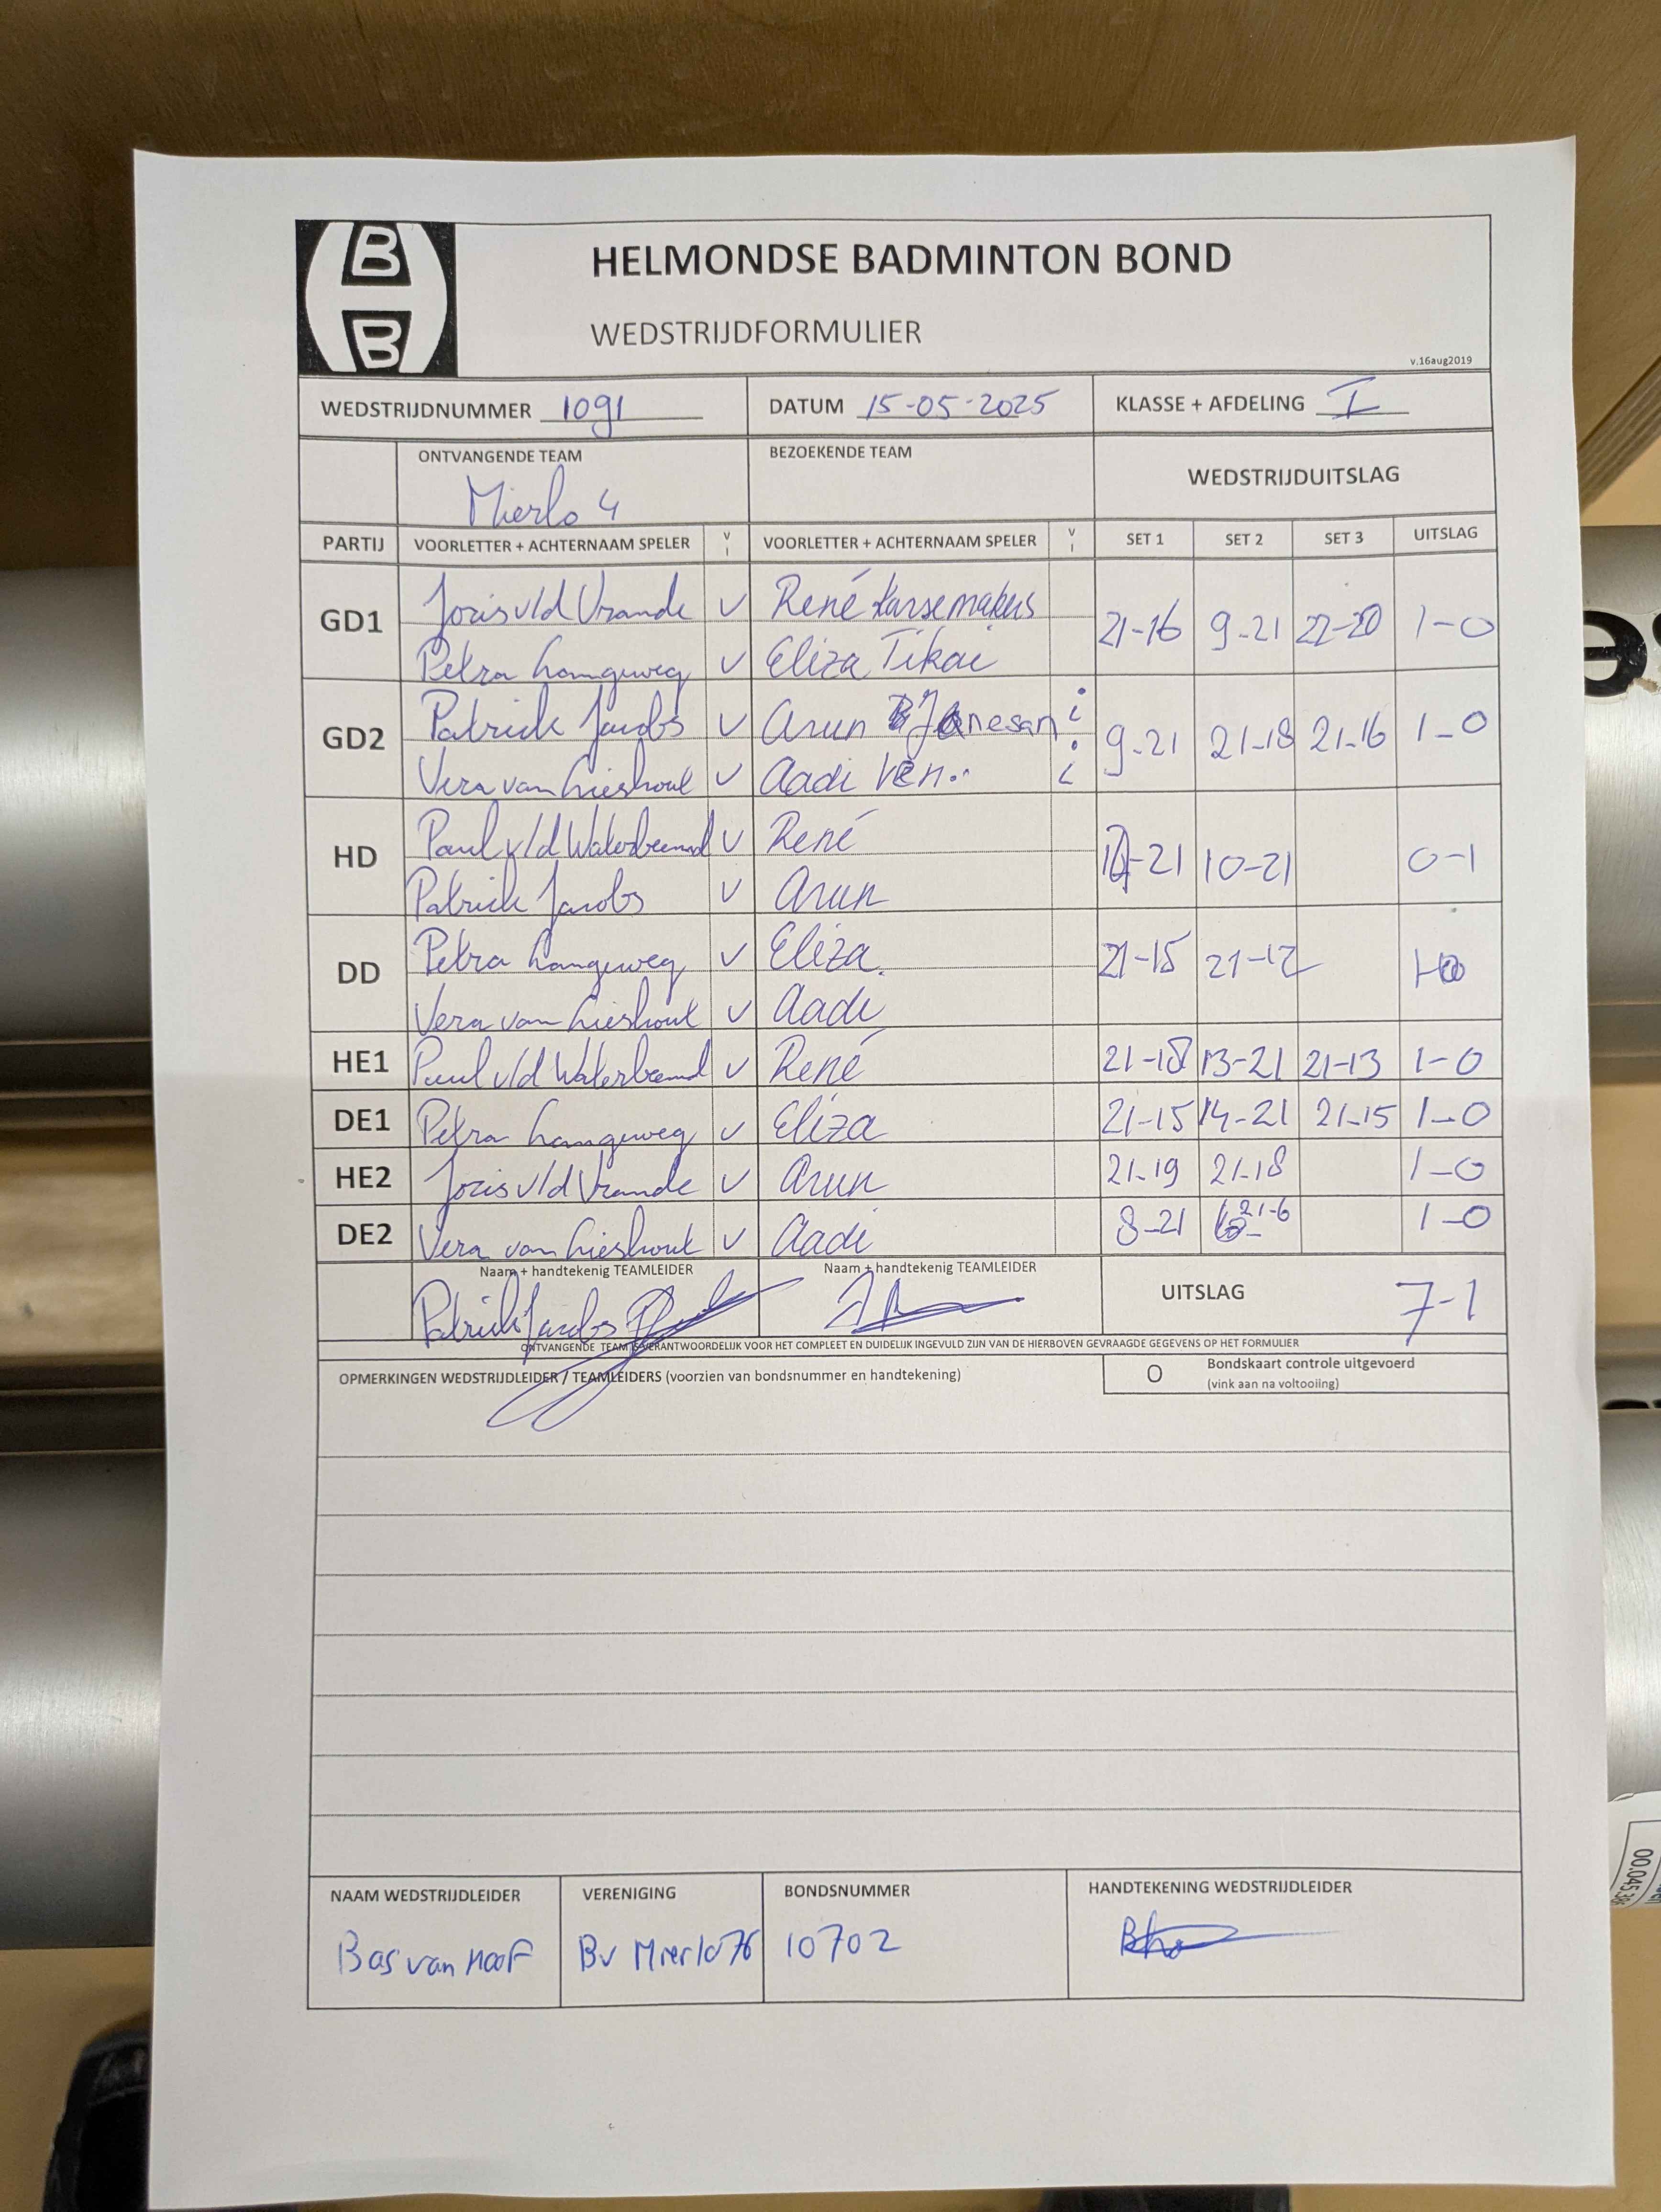 B
B
HELMONDSE BADMINTON BOND
WEDSTRIJDFORMULIER
v.16aug2019
WEDSTRIJDNUMMER 1091 DATUM 15-05-2025 KLASSE + AFDELING I
ONTVANGENDE TEAM BEZOEKENDE TEAM WEDSTRIJDUITSLAG
Mierlo 4
PARTIJ VOORLETTER + ACHTERNAAM SPELER V I VOORLETTER + ACHTERNAAM SPELER V I SET 1 SET 2 SET 3 UITSLAG
GD1 Joris v/d Vrande v René Karsemakers 21-16 9-21 22-20 1-0
Petra Langeweg v Eliza Tikai
GD2 Patrick Jacobs v Arun i 9-21 21-18 21-16 1-0
Vera van Lieshout v Aadi Ven.. i
HD Paul v/d Waterbeemd v René -21 10-21 0-1
Patrick Jacobs v Arun
DD Petra Langeweg v Eliza. 21-15 21-12 1-0
Vera van Lieshout v Aadi
HE1 Paul v/d Waterbeemd v René 21-18 13-21 21-13 1-0
DE1 Petra Langeweg v Eliza 21-15 14-21 21-15 1-0
HE2 Joris v/d Vrande v Arun 21-19 21-18 1-0
DE2 Vera van Lieshout v Aadi 8-21 21-6 1-0
Naam + handtekenig TEAMLEIDER Naam + handtekenig TEAMLEIDER UITSLAG 7-1
Patrick Jacobs
ONTVANGENDE TEAM IS VERANTWOORDELIJK VOOR HET COMPLEET EN DUIDELIJK INGEVULD ZIJN VAN DE HIERBOVEN GEVRAAGDE GEGEVENS OP HET FORMULIER
OPMERKINGEN WEDSTRIJDLEIDER / TEAMLEIDERS (voorzien van bondsnummer en handtekening) O Bondskaart controle uitgevoerd
(vink aan na voltooiing)
NAAM WEDSTRIJDLEIDER VERENIGING BONDSNUMMER HANDTEKENING WEDSTRIJDLEIDER
Bas van Hoof BV Mierlo 76 10702